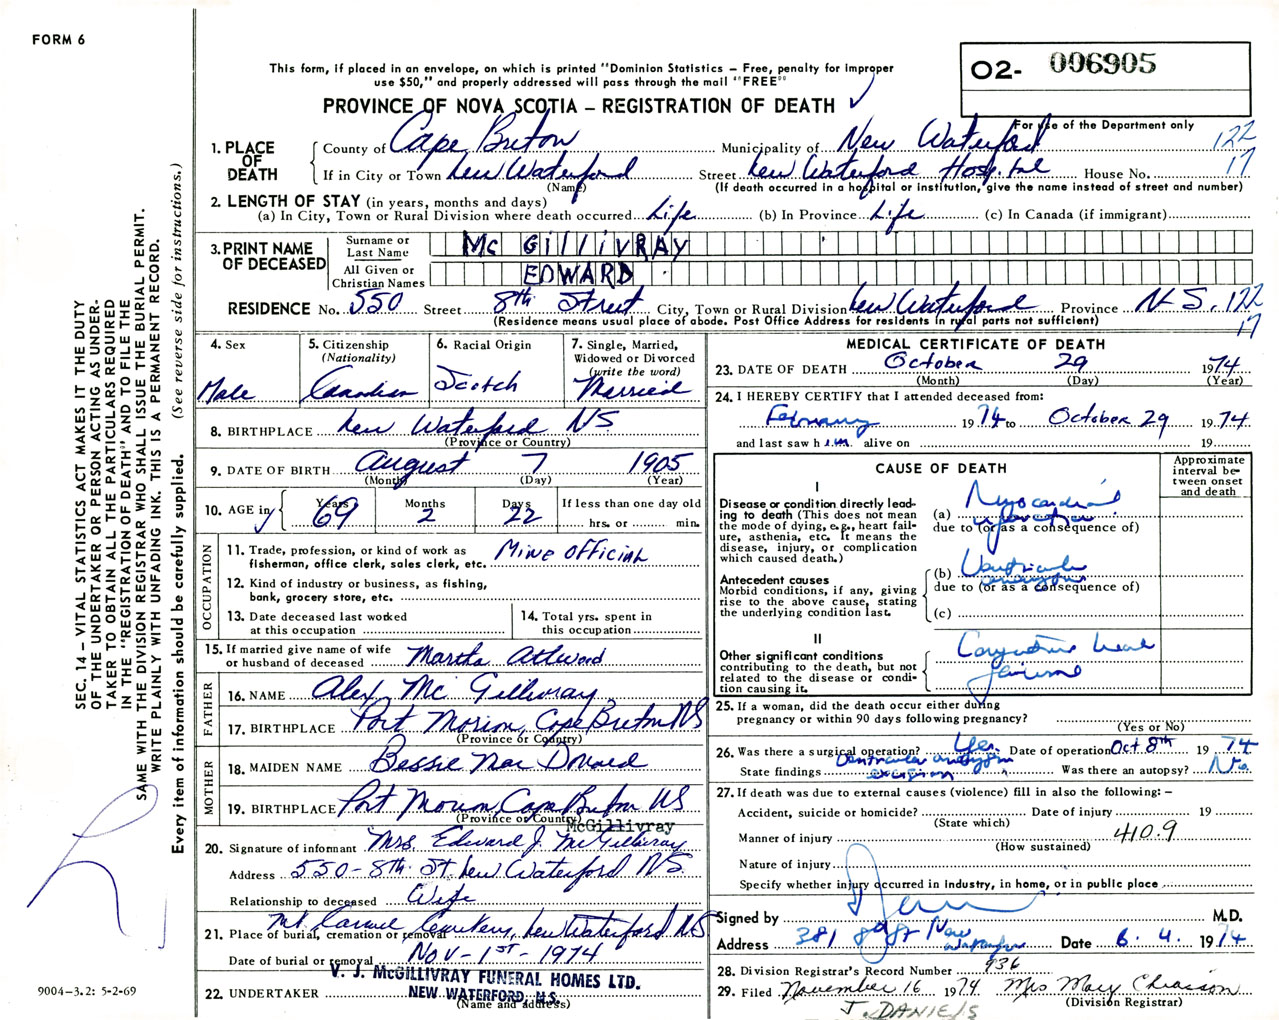 FORM 6
This form, if placed in an envelope, on which is printed "Dominion Statistics – Free, penalty for improper
use $50," and properly addressed will pass through the mail "FREE"
O2- 006905
For use of the Department only
PROVINCE OF NOVA SCOTIA – REGISTRATION OF DEATH
1. PLACE OF DEATH County of Cape Breton Municipality of New Waterford 122
If in City or Town New Waterford Street New Waterford Hospital House No. 17
(Name) (If death occurred in a hospital or institution, give the name instead of street and number)
2. LENGTH OF STAY (in years, months and days)
(a) In City, Town or Rural Division where death occurred Life (b) In Province Life (c) In Canada (if immigrant)
3. PRINT NAME OF DECEASED
Surname or Last Name Mc GilliVRAY
All Given or Christian Names EDWARD
RESIDENCE No. 550 Street 8th Street City, Town or Rural Division New Waterford Province N.S. 122
(Residence means usual place of abode. Post Office Address for residents in rural parts not sufficient) 17
4. Sex Male
5. Citizenship (Nationality) Canadian
6. Racial Origin Scotch
7. Single, Married, Widowed or Divorced (write the word) Married
8. BIRTHPLACE New Waterford NS
(Province or Country)
9. DATE OF BIRTH August 7 1905
(Month) (Day) (Year)
10. AGE in Years 69 Months 2 Days 22 If less than one day old
hrs. or min.
OCCUPATION
11. Trade, profession, or kind of work as fisherman, office clerk, sales clerk, etc. Mine Official
12. Kind of industry or business, as fishing, bank, grocery store, etc.
13. Date deceased last worked at this occupation
14. Total yrs. spent in this occupation
15. If married give name of wife or husband of deceased Martha Attwood
FATHER
16. NAME Alex Mc Gillivray
17. BIRTHPLACE Port Morien, Cape Breton NS
(Province or Country)
MOTHER
18. MAIDEN NAME Bessie Mac Donald
19. BIRTHPLACE Port Morien, Cape Breton NS
(Province or Country)
McGillivray
20. Signature of informant Mrs. Edward J. McGillivray
Address 550 - 8th St. New Waterford NS.
Relationship to deceased Wife
21. Place of burial, cremation or removal Mt. Carmel Cemetery, New Waterford NS
Date of burial or removal Nov - 1st - 1974
22. UNDERTAKER V. J. McGILLIVRAY FUNERAL HOMES LTD.
NEW WATERFORD, N.S.
(Name and address)
MEDICAL CERTIFICATE OF DEATH
23. DATE OF DEATH October 29 1974
(Month) (Day) (Year)
24. I HEREBY CERTIFY that I attended deceased from:
February 1974 to October 29 1974
and last saw him alive on 19
CAUSE OF DEATH
Approximate interval between onset and death
I
Disease or condition directly lead-
ing to death (This does not mean
the mode of dying, e.g., heart fail-
ure, asthenia, etc. It means the
disease, injury, or complication
which caused death.)
(a) Myocardial infarction
due to (or as a consequence of)
Antecedent causes
Morbid conditions, if any, giving
rise to the above cause, stating
the underlying condition last.
(b) Ventricular aneurysm
due to (or as a consequence of)
(c)
II
Other significant conditions
contributing to the death, but not
related to the disease or condi-
tion causing it.
Congestive heart
failure
25. If a woman, did the death occur either during
pregnancy or within 90 days following pregnancy?
(Yes or No)
26. Was there a surgical operation? Yes Date of operation Oct 8th 1974
State findings Ventricular aneurysm excision Was there an autopsy? No
27. If death was due to external causes (violence) fill in also the following: –
Accident, suicide or homicide? Date of injury 19
(State which)
Manner of injury 410.9
(How sustained)
Nature of injury
Specify whether injury occurred in industry, in home, or in public place
Signed by M.D.
Address 381 New Waterford Date 6. 4. 1974
28. Division Registrar's Record Number 936
29. Filed November 16 1974 Mrs Mary Chiasson
(Division Registrar)
J. DANIELS
SEC. 14 – VITAL STATISTICS ACT MAKES IT THE DUTY
OF THE UNDERTAKER OR PERSON ACTING AS UNDER-
TAKER TO OBTAIN ALL THE PARTICULARS REQUIRED
IN THE "REGISTRATION OF DEATH" AND TO FILE THE
SAME WITH THE DIVISION REGISTRAR WHO SHALL ISSUE THE BURIAL PERMIT.
WRITE PLAINLY WITH UNFADING INK. THIS IS A PERMANENT RECORD.
Every item of information should be carefully supplied. (See reverse side for instructions.)
9004-3.2: 5-2-69